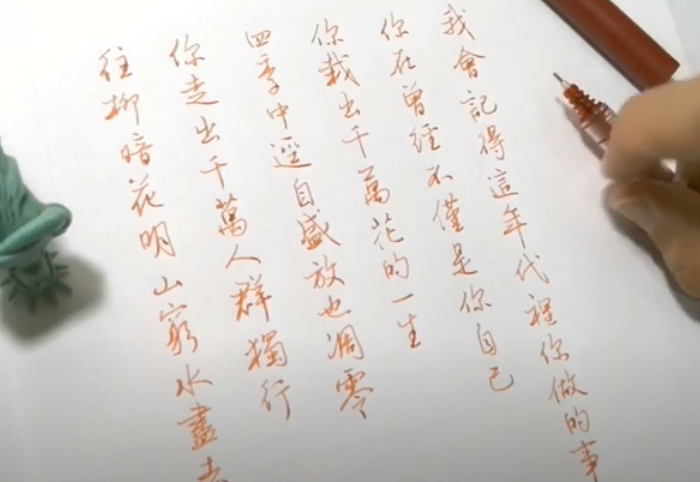 我會記得這年代裡你做的事
你在曾經不僅是你自己
你栽出千萬花的一生
四季中逕自盛放也凋零
你走出千萬人群獨行
往柳暗花明山窮水盡去